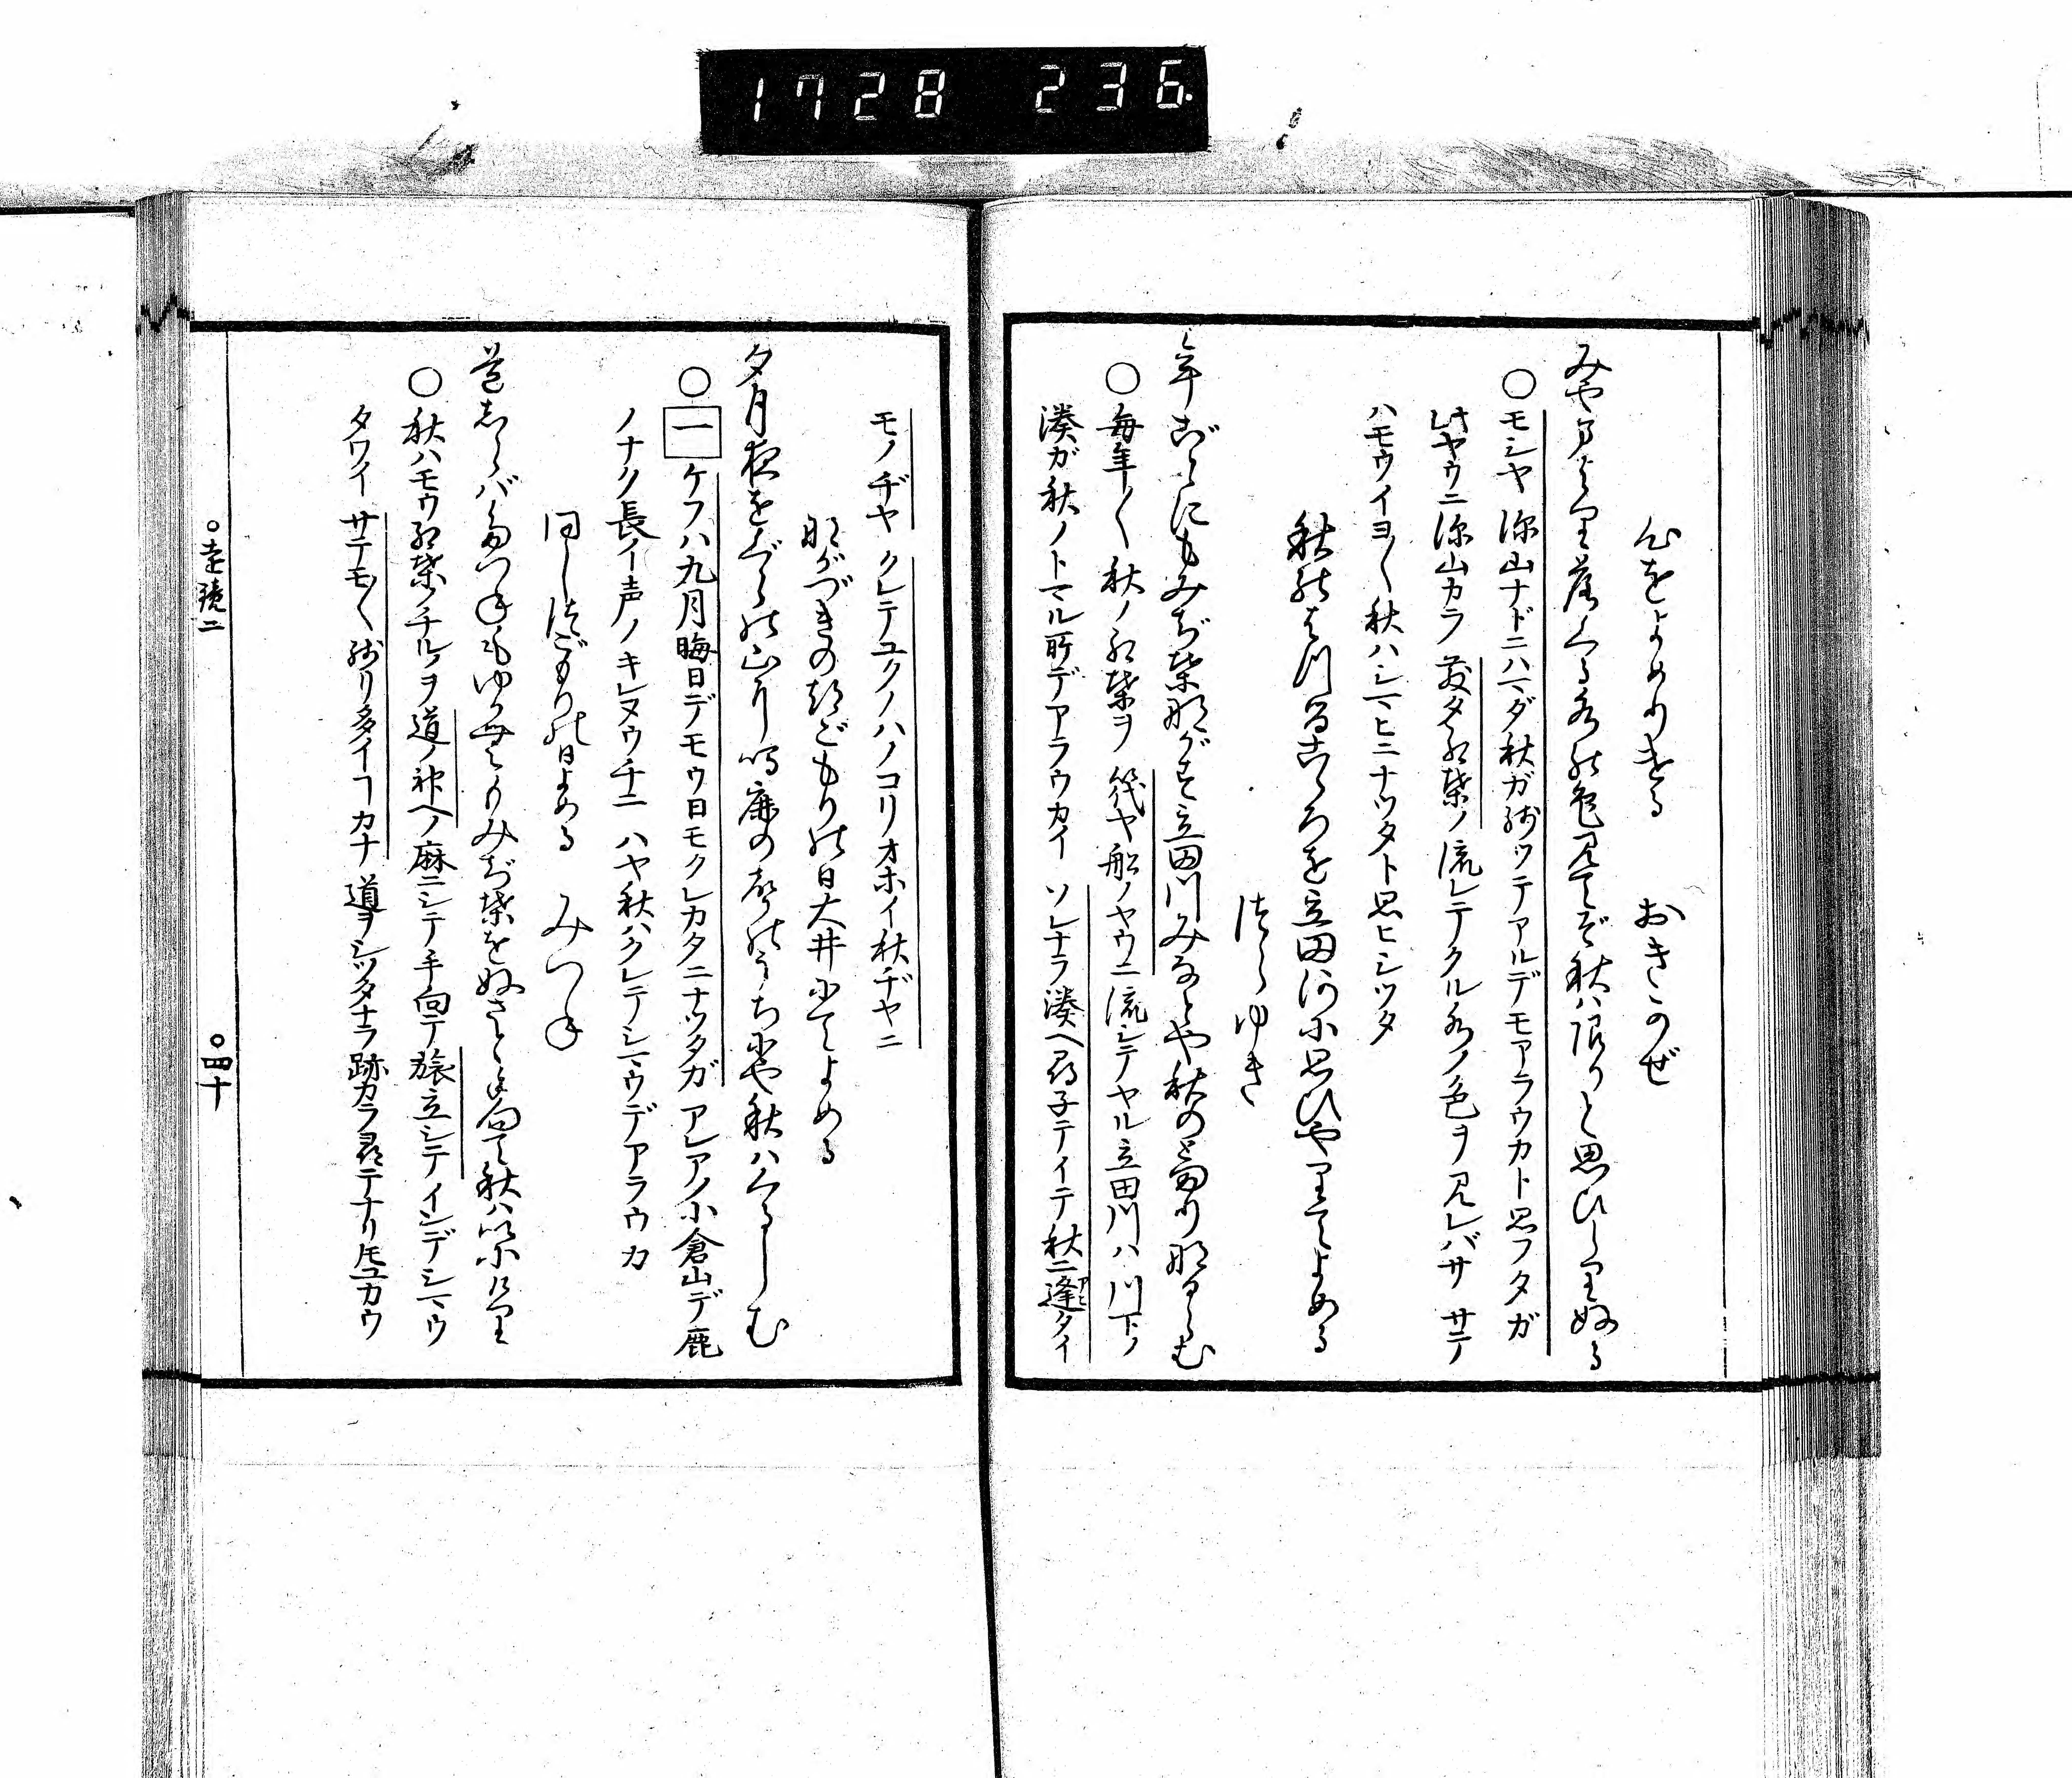 1728 236
心をよめりける　おきかぜ
みやまより落くる水の色見てぞ秋は限りと思ひしりぬる
○モシヤ深山ナドニハマダ秋ガ残ッテアルデモアラウカト思フタガ
此ヤウニ深山カラ散タ紅葉ノ流レテクル水ノ色ヲ見レバサ サテ
ハモウイヨ〱秋ハシマヒニナツタト思ヒシツタ
秋のはつるこゝろを立田河に思ひやりてよめる
つらゆき
年ごとにもみぢ葉ながす立田川みなとや秋のとまりなるらむ
○毎年〱秋ノ紅葉ヲ筏ヤ船ノヤウニ流シテヤル立田川ハ川下ノ
湊ガ秋ノトマル所デアラウカイ ソレナラ湊ヘ尋子テイテ秋ニ逢タイ
モノヂヤ クレテユクノハノコリオホイ秋ヂヤニ
なが月のつごもりの日大井にてよめる
夕月夜をぐらの山に鳴鹿の声のうちにや秋はくるらむ
○一ケフハ九月晦日デモウ日モクレカタニナツタガ アレアノ小倉山デ鹿
ノナク長イ声ノキレヌウチニ ハヤ秋ハクレテシマウデアラウカ
同じつごもりの日よめる　みつね
道しらばたづねもゆかむもみぢ葉をぬさと手向て秋はいにけり
○秋ハモウ紅葉ノチルヲ道ノ神ヘノ麻ニシテ手向テ旅立シテインデシマウ
タワイ サテモ〱残リ多イヿカナ 道ヲシツタナラ跡カラ尋テナリ𪜈ユカウ
○遠鏡二
○四十